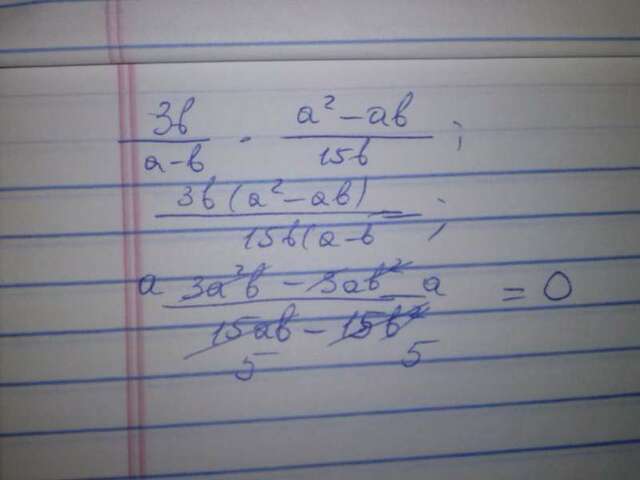 3b/(a-b) · (a² - ab)/15b ;
3b(a² - ab)/15b(a-b = ;
a (3a²b - 3ab²)/(15ab - 15b²) a = 0
5 5